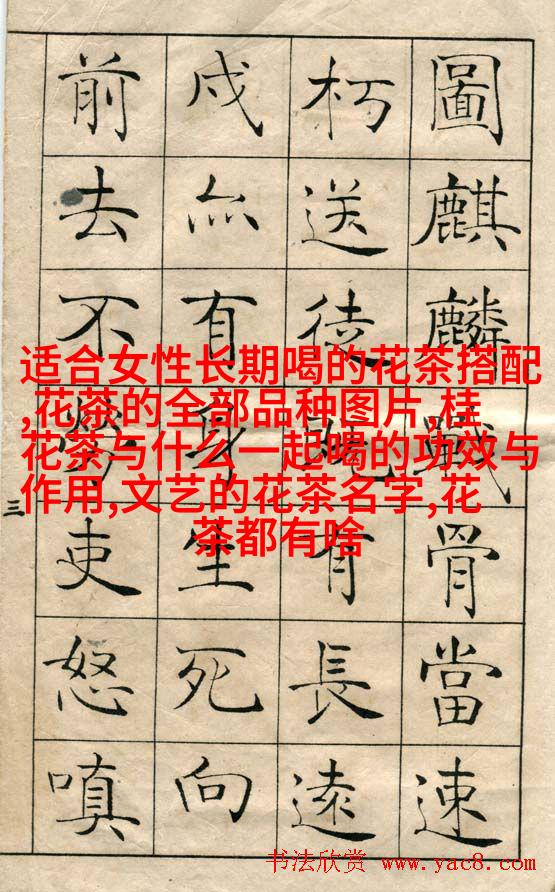 圖麒麟戰骨當速
朽送徒既有長遠
戍亦有身生死向
前去不勞吏怒嗔
三
适合女性长期喝的花茶搭配
,花茶的全部品种图片,桂
花茶与什么一起喝的功效与
作用,文艺的花茶名字,花
茶都有啥
书法欣赏 www.yac8.com